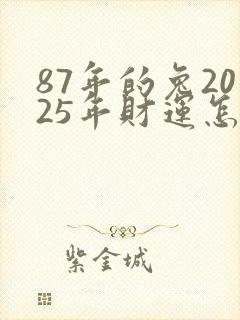 87年的兔20
25年财運怎
紫金城